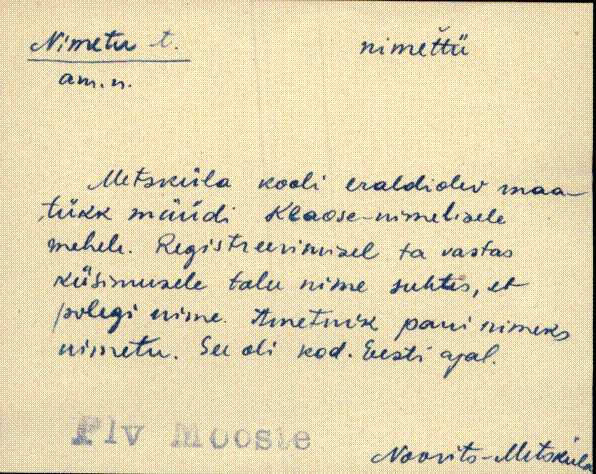 Nimetu t.
nimet̆tü
am.n.
Metsküla kooli eraldiolev maa-
tükk müüdi Klaose-nimelisele
mehele. Registreerimisel ta vastas
küsimusele talu nime suhtes, et
polegi nime. Ametnik pani nimeks
nimetu. See oli kod. Eesti ajal.
Plv Mooste
Noorits-Metsküla